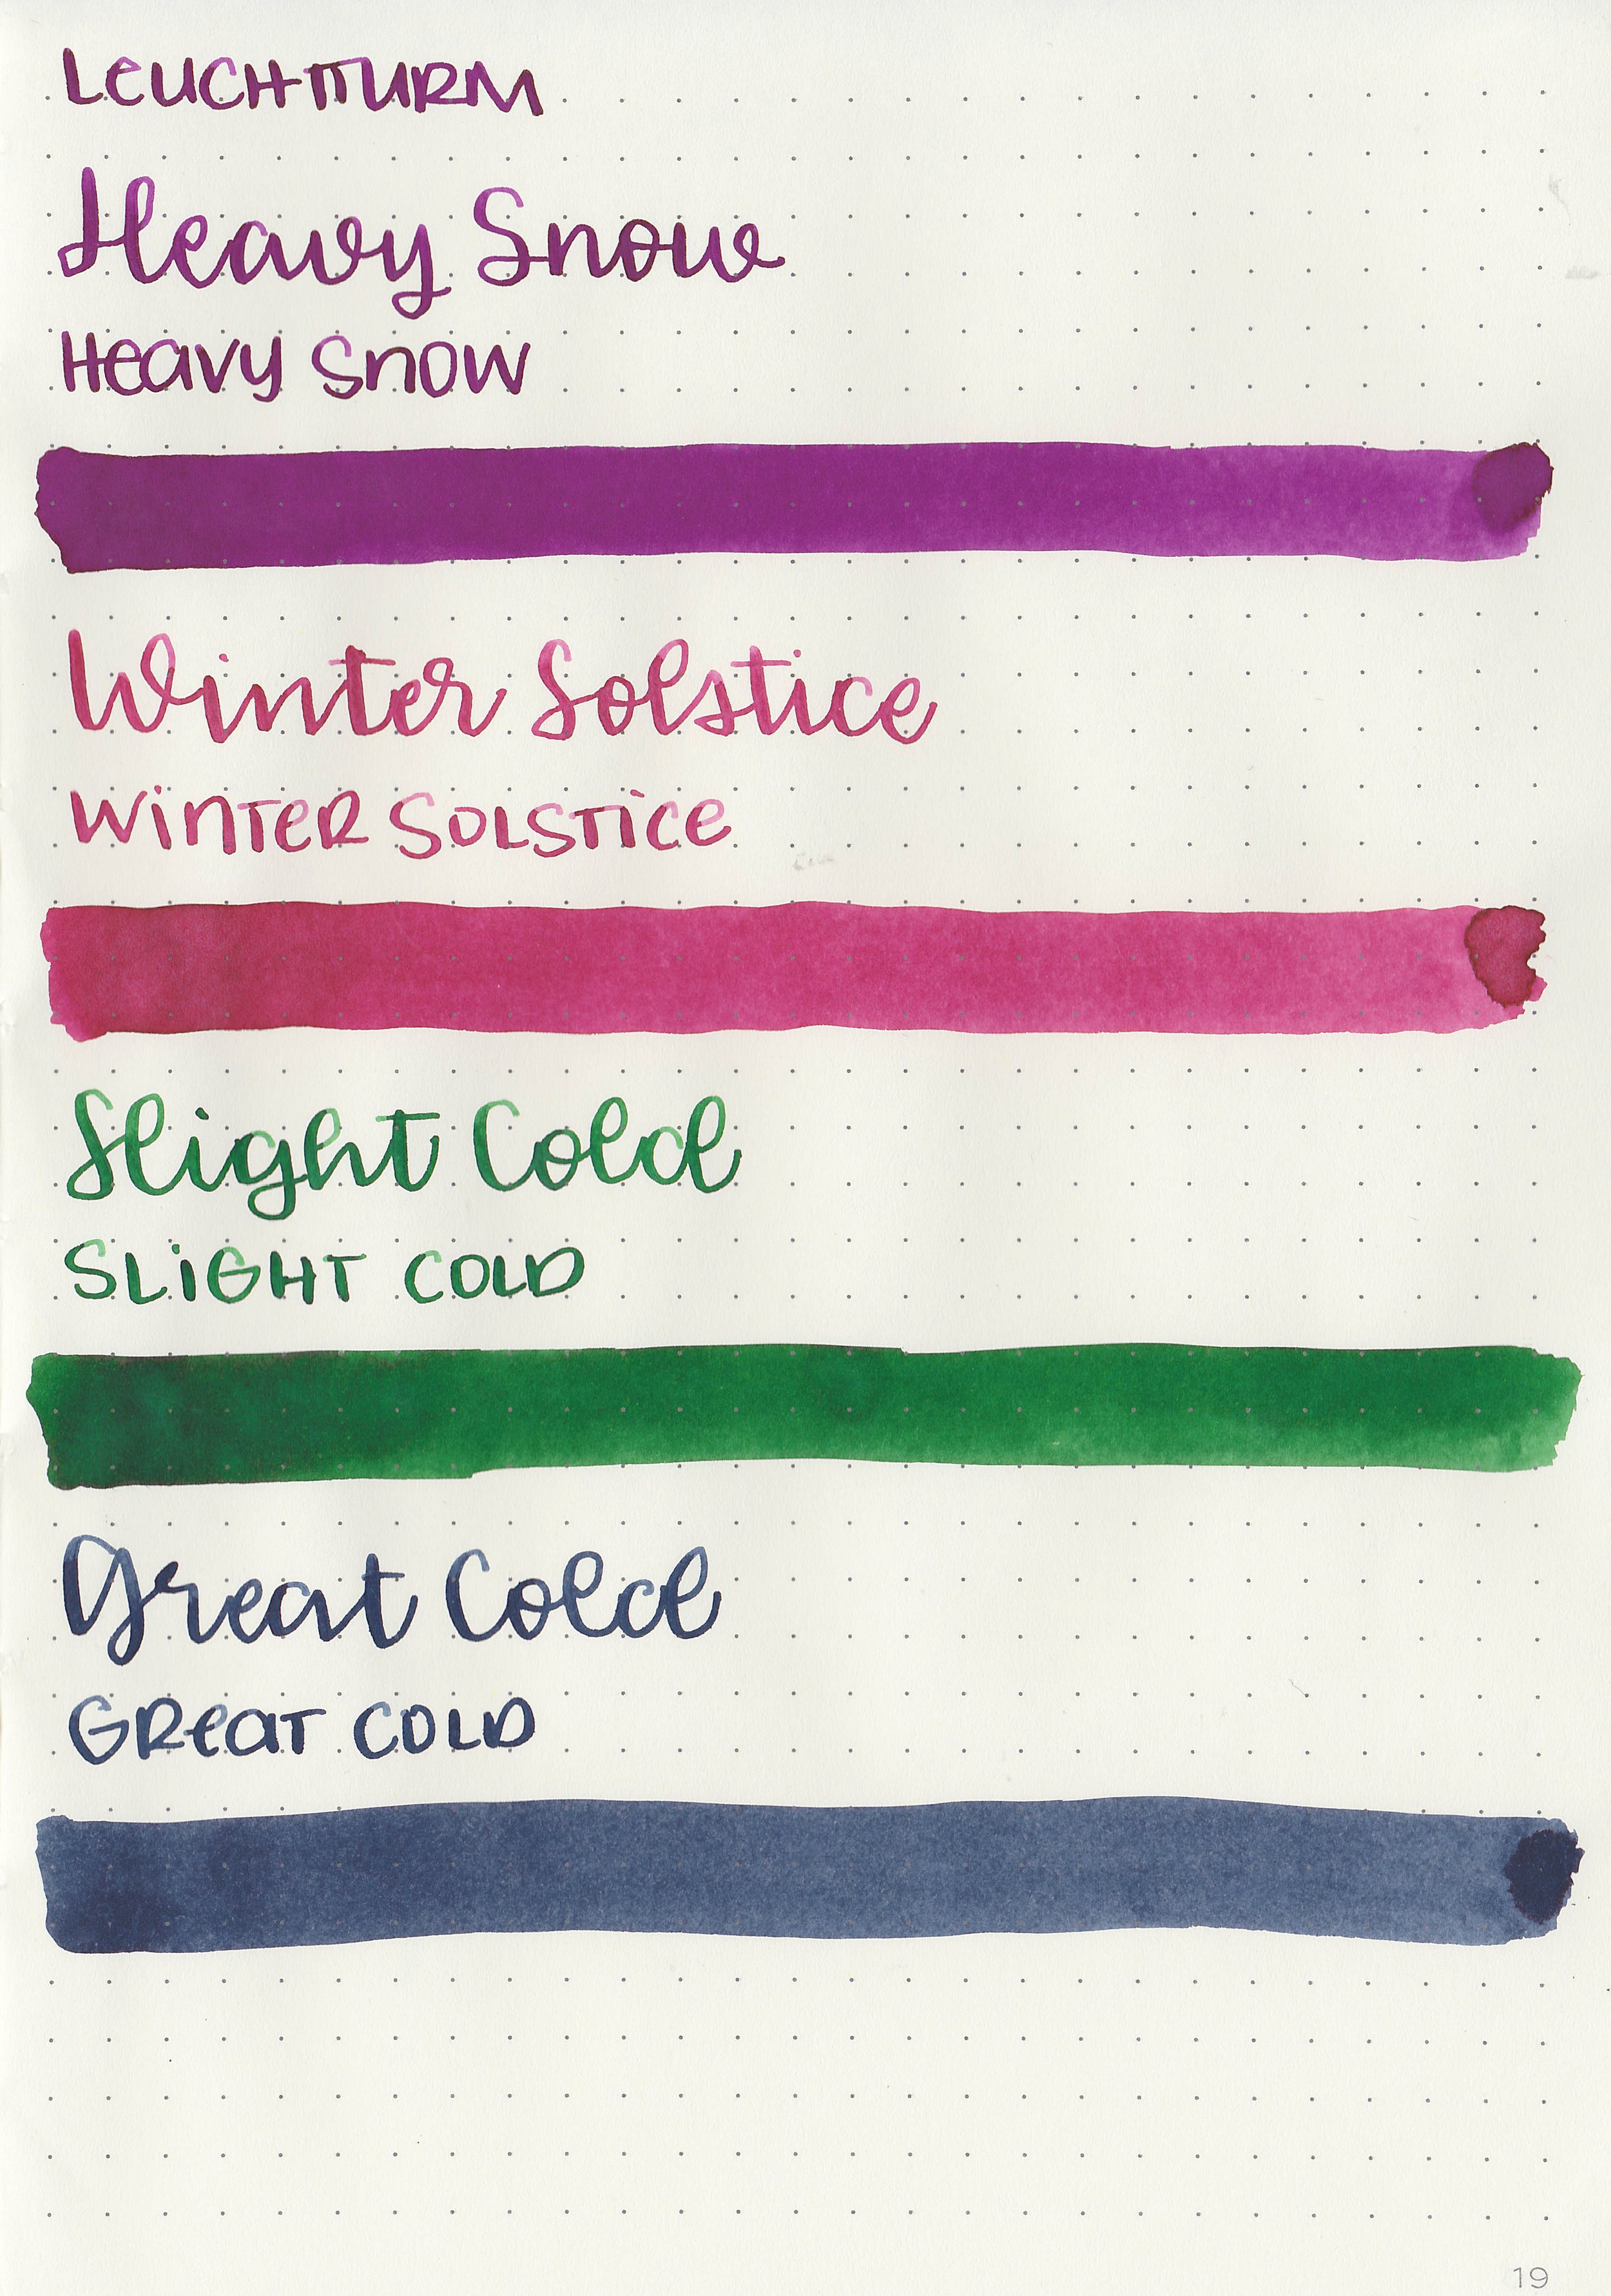 LEUCHTTURM
Heavy Snow
Heavy Snow
Winter Solstice
Winter Solstice
Slight Cold
Slight Cold
Great Cold
Great Cold
19